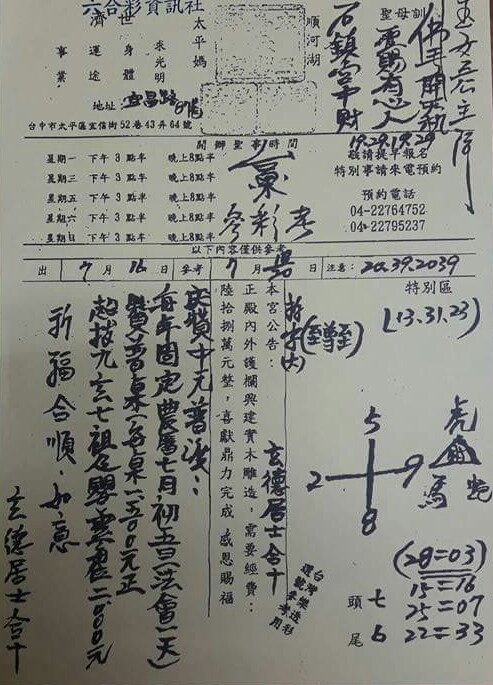 六合彩資訊社
濟世
身運事
求光明
體途業
太平媽
順河湖
聖母訓
佛手開彩
要賜有心人
石鎮宮中財
19.29.19.29
敬請提早報名
特別事請來電預約
預約電話
04-22764752
04-22795237
地址
宜昌路
台中市太平區宜信街52巷43弄64號
開聖事時間
星期一 下午3點半 晚上8點半
星期三 下午3點半 晚上8點半
星期五 下午3點半 晚上8點半
星期六 下午3點半 晚上8點半
星期日 下午3點半 晚上8點半
六彙
參彩考
以下內容僅供參考
出 7月16日 參考 7月 日 注意: 20.39.2039
特別區
(13.31.23)
本宮公告:
正殿內外護欄興建實木雕造,需要經費:
陸拾捌萬元整,喜獻鼎力完成 感恩賜福
玄德居士合十
(至尊至大)
5
2 9
8
虎
馬
(28=03)
15=16
25=07
22=33
頭 七
尾 6
台灣樂透彩
選號參考用
慶贊中元普渡:
每年固定農曆七月初五日(法會一天)
贊普桌(每桌1500元正
超拔九玄七祖 嬰靈 2000元
祈福合順、如意
玄德居士合十